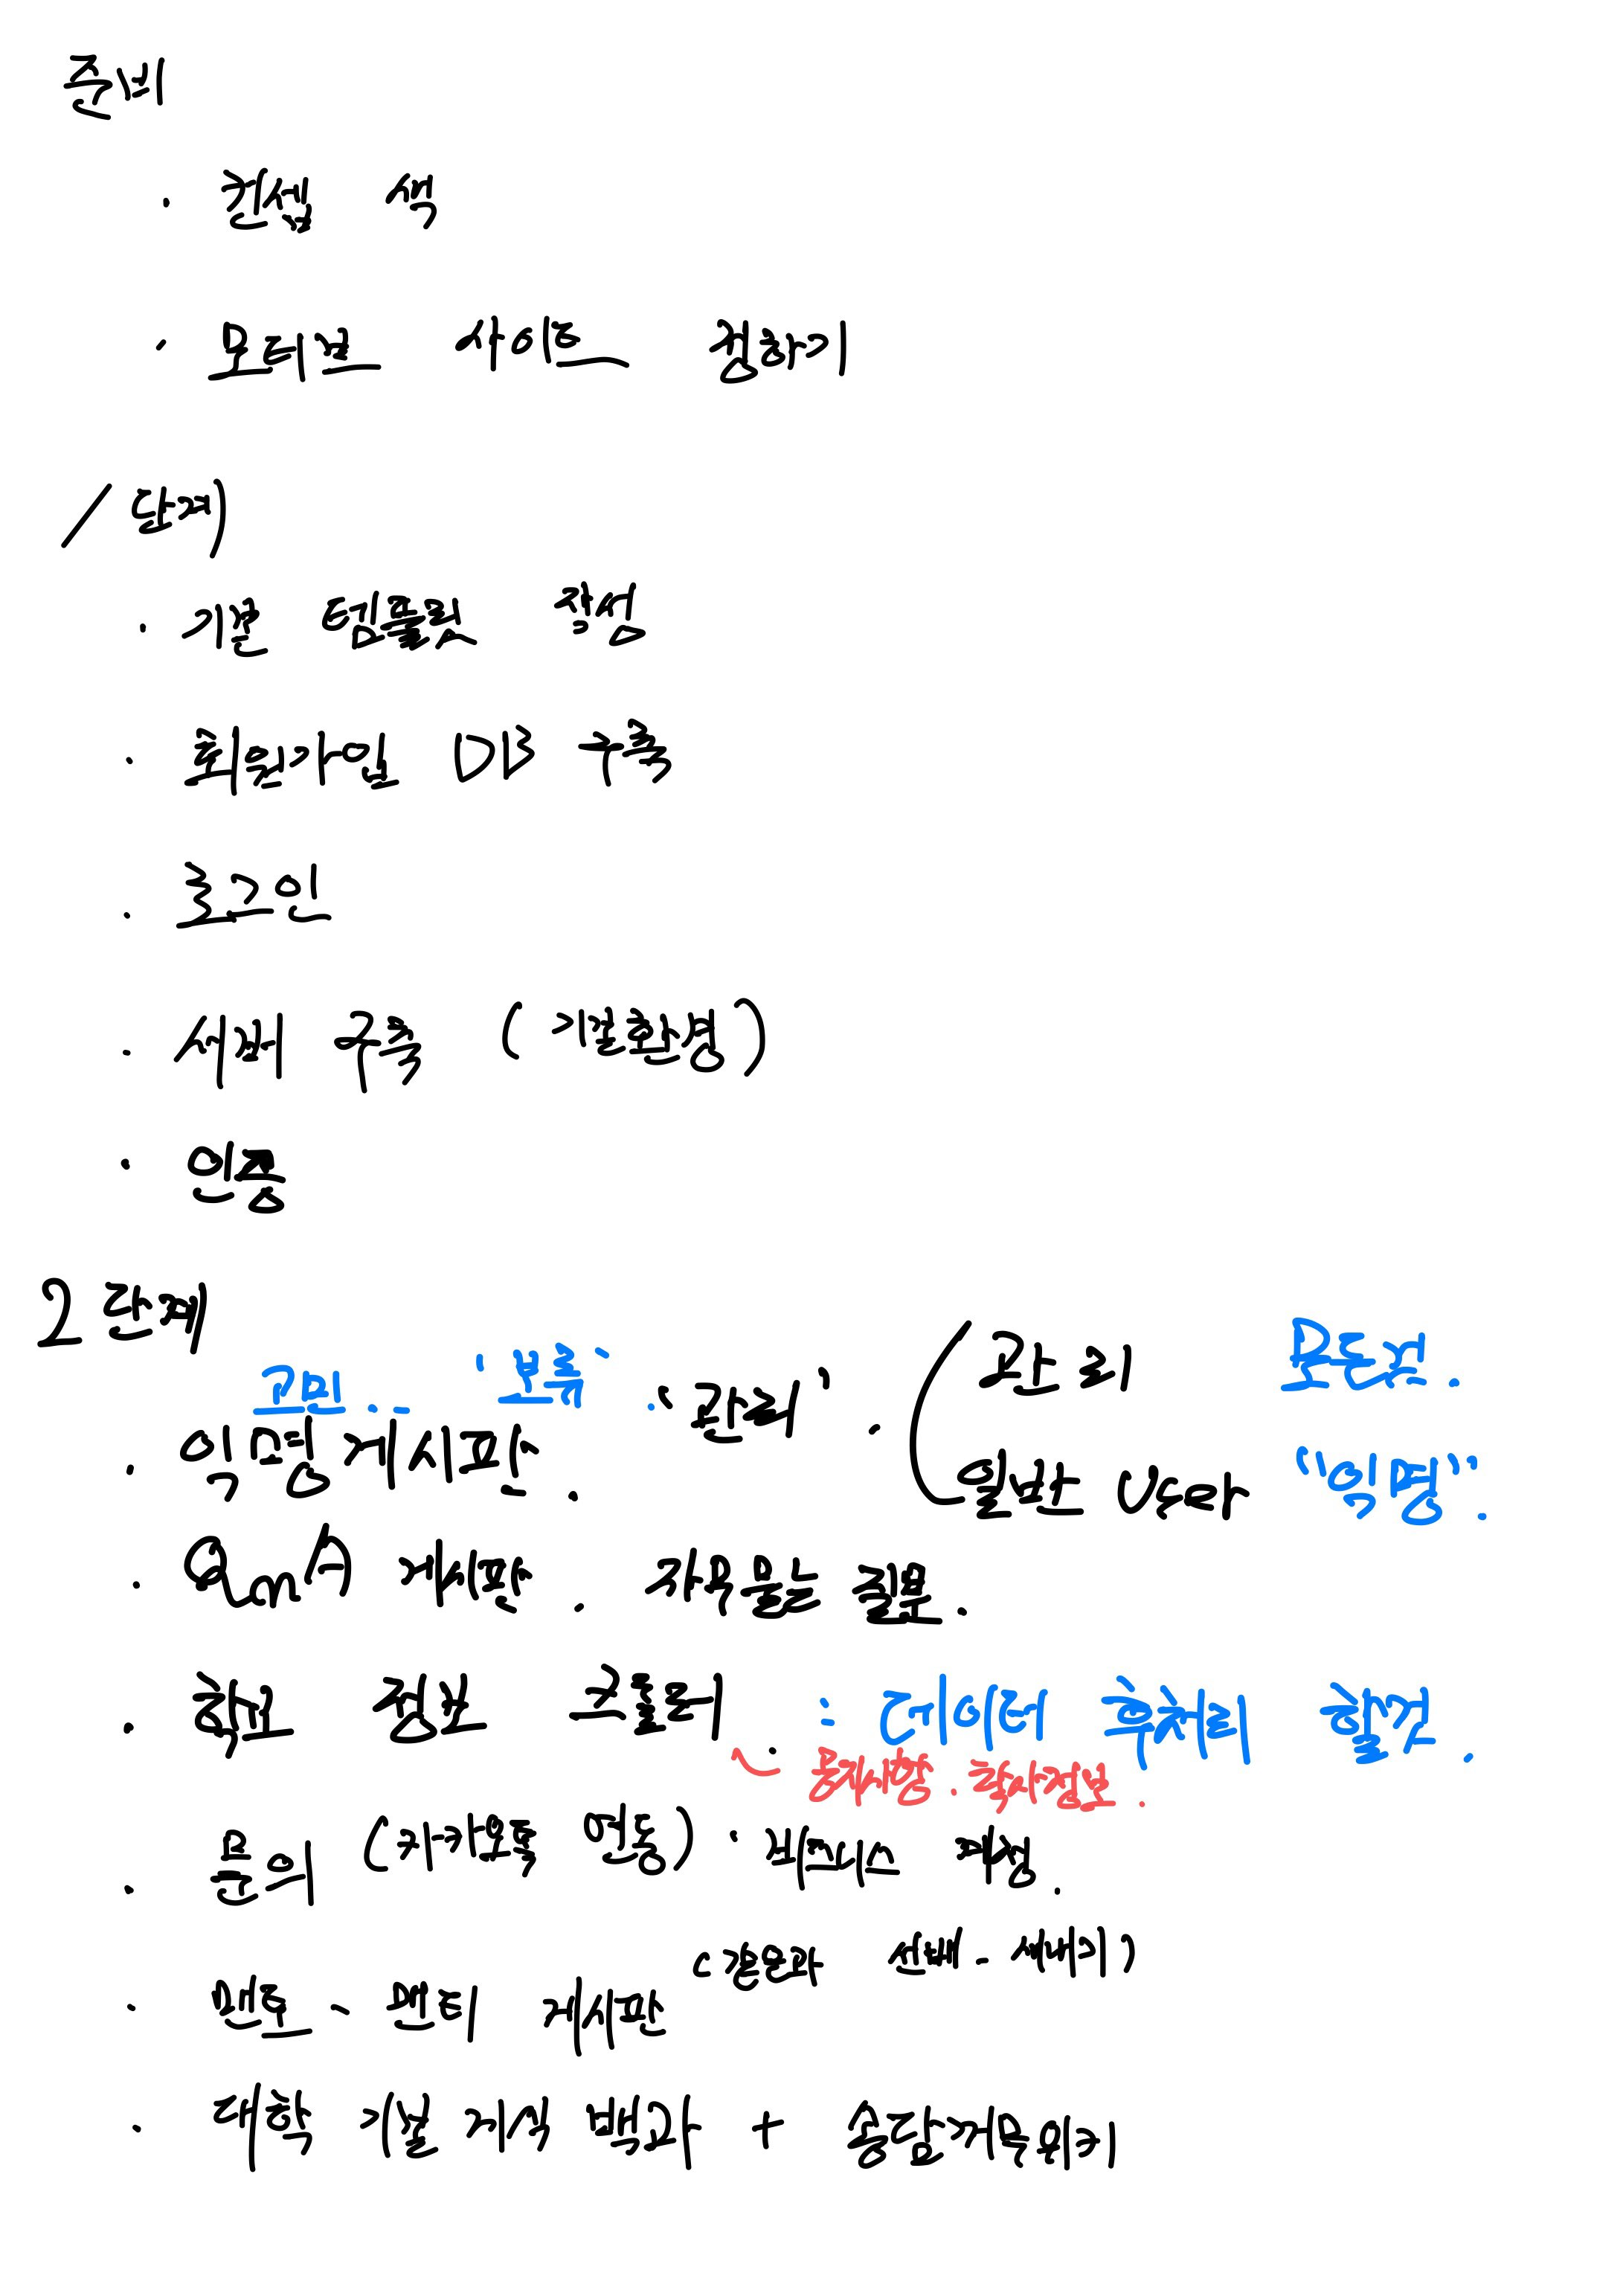 준비
· 컨셉 색
· 모티브 사이트 정하기
1단계
· 기본 템플릿 작성
· 회원가입 DB 구축
· 로그인
· 서버 구축 (개발환경)
· 인증
2단계
고민.. '보류'. "관리". ( 관리 모든것.
· 익명게시판. 일반 User "익명".
· QnA 게시판. 자주묻는 질문.
· 학교 정보 크롤러. : 데이터 후처리 할것.
공지사항. 학사정보.
· 문의 (카카오톡 연동) · 비즈니스 계정.
· 멘토 - 멘티 게시판 (잘몰라 선배 - 새내기)
· 대학 기본 지식 백과 + 송담거목위키